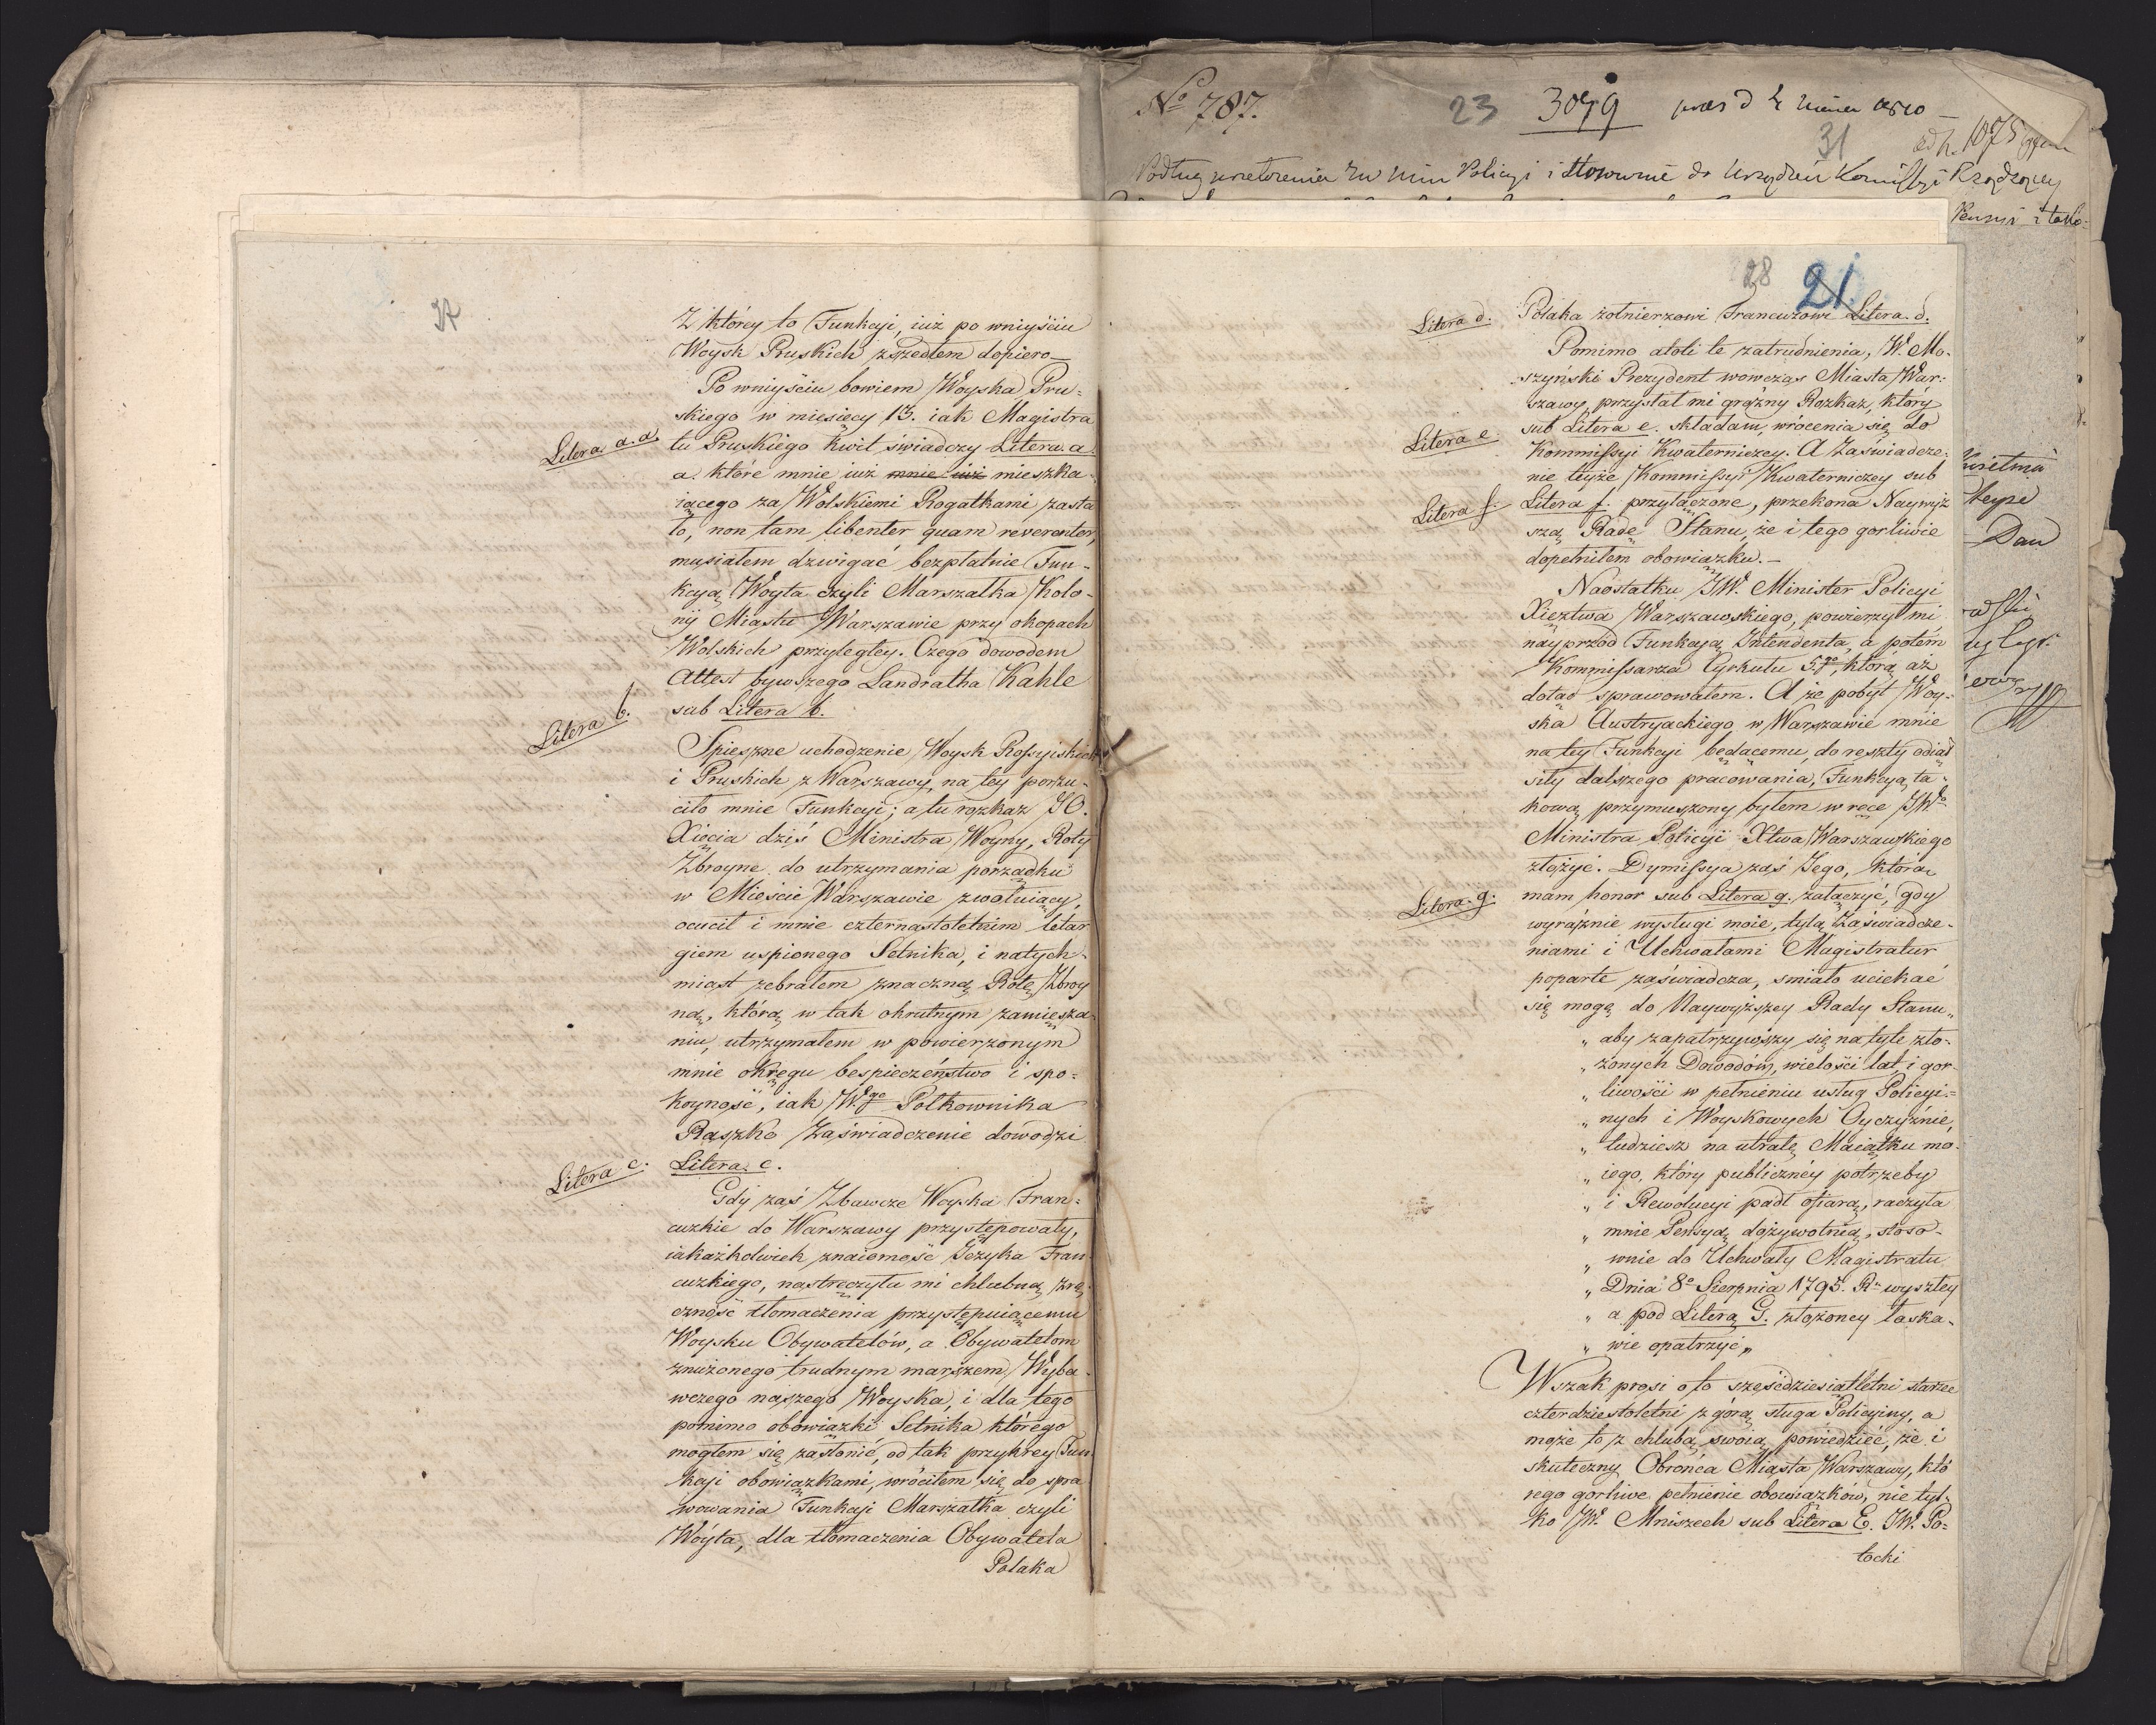 Z którey to Funkcyi, iuż po wniyściu
Woysk Pruskich zszedłem dopiero
Po wniyściu bowiem Woyska Pru=
skiego w miesięcy 13. iak Magistra
Litera a.a.
tu Pruskiego kwit świadczy Litera a
a. które mnie iuż mnie iuż mieszka-
iącego za Wolskiemi Rogatkami zasta
ło, non tam libenter quam reverenter,
musiałem dzwigać bezpłatnie Fun-
kcyą Woyta czyli Marszałka Kolo-
nij Miastu Warszawie przy okopach
Wolskich przyległey. Czego dowodem
Attest bywszego Landratha Kahle
Litera b.
sub Litera b.
Spieszne uchodzenie Woysk Rossyiskich
i Pruskich z Warszawy, na tey porzu-
ciło mnie Funkcyi; a tu rozkaz JO.
Xięcia dziś Ministra Woyny, Roty
Zbroyne do utrzymania porządku
w Mieście Warszawie zwołuiący,
ocucił i mnie czternastoletnim letar
giem uspionego Setnika, i natych-
miast zebrałem znaczną Rotę Zbroy
ną, którą w tak okrutnym zamiesza-
niu, utrzymałem w powierzonym
mnie okręgu bespieczeństwo i spo=
koyność, iak W.go Połkownika
Raszko Zaświadczenie dowodzi
Litera c.
Litera c.
Gdy zaś Zbawcze Woyska Fran=
cuzkie do Warszawy przystępowały,
iakażkolwiek znaiomość Języka Fran
cuzkiego, nastręczyła mi chlubną zrę-
czność tłomaczenia przystępuiącemu
Woysku Obywatelów, a Obywatelom
znużonego trudnym marszem Wyba-
wczego naszego Woyska, i dla tego
pomimo obowiązki Setnika którego
mogłem się zasłonić, od tak przykrey Fun
kcyi obowiązkami, wróciłem się do spra
wowania Funkcyi Marszałka czyli
Woyta, dla tłomaczenia Obywatela
Polaka
No 787.
23
3079
31
Podług
28
21.
Litera d.
Polaka żołnierzowi Francuzowi Litera. d.
Pomimo atoli te zatrudnienia, W. Mo-
szyński Prezydent wowczas Miasta War=
szawy, przysłał mi groźny Rozkaz, który
Litera e.
sub Litera e. składam, wrócenia się do
Kommissyi Kwaterniczey. A Zaświadcze-
nie teyże Kommissyi Kwaterniczey sub
Litera f.
Litera f. przyłączone, przekona Naywyż
szą Radę Stanu, że i tego gorliwie
dopełniłem obowiązku.—
Naostatku JW. Minister Policyi
Xięztwa Warszawskiego, powierzył mi
nayprzód Funkcyą Intendenta, a potém
Kommissarza Cyrkułu 5.go, którą aż
dotąd sprawowałem. A że pobyt Woy-
ska Austryackiego w Warszawie mnie
na tey Funkcyi będącemu, do reszty odiął
siły dalszego pracowania, Funkcyą ta-
kową przymuszony byłem w ręce JWo
Ministra Policyi Xtwa Warszawskiego
złożyć. Dymissya zaś Jego, którą
Litera. g.
mam honor sub Litera g. załączyć, gdy
wyraźnie wysługi moie, tylą Zaświadcze-
niami i Uchwałami Magistratur
poparte zaświadcza, smiało uciekać
się mogę do Naywyższey Rady Stanu„
„ aby zapatrzywszy się na tyle zło-
„ żonych Dowodów, wielości lat, i gor-
„ liwości w pełnieniu usług Policyi=
„ nych i Woyskowych Oyczyźnie,
„ tudziesz na utratę Maiątku mo-
„ iego, który publicznéy potrzeby
„ i Rewolucyi padł ofiarą, raczyła
„ mnie Pensyą dożywotnią, stoso-
„ wnie do Uchwały Magistratu
„ Dnia 8o Sierpnia 1795. Ru wyszłey
„ a pod Literą G. złożoney łaska-
„ wie opatrzyć„
Wszak prosi o to sześćdziesiątletni starzec
czterdziestoletni z górą sługa Policyiny, a
może to z chlubą swoią powiedzieć, że i
skuteczny Obrońca Miasta Warszawy, któ
rego gorliwe pełnienie obowiązków, nie tyl-
ko JW. Mniszech sub Litera E. JW. Po=
tocki